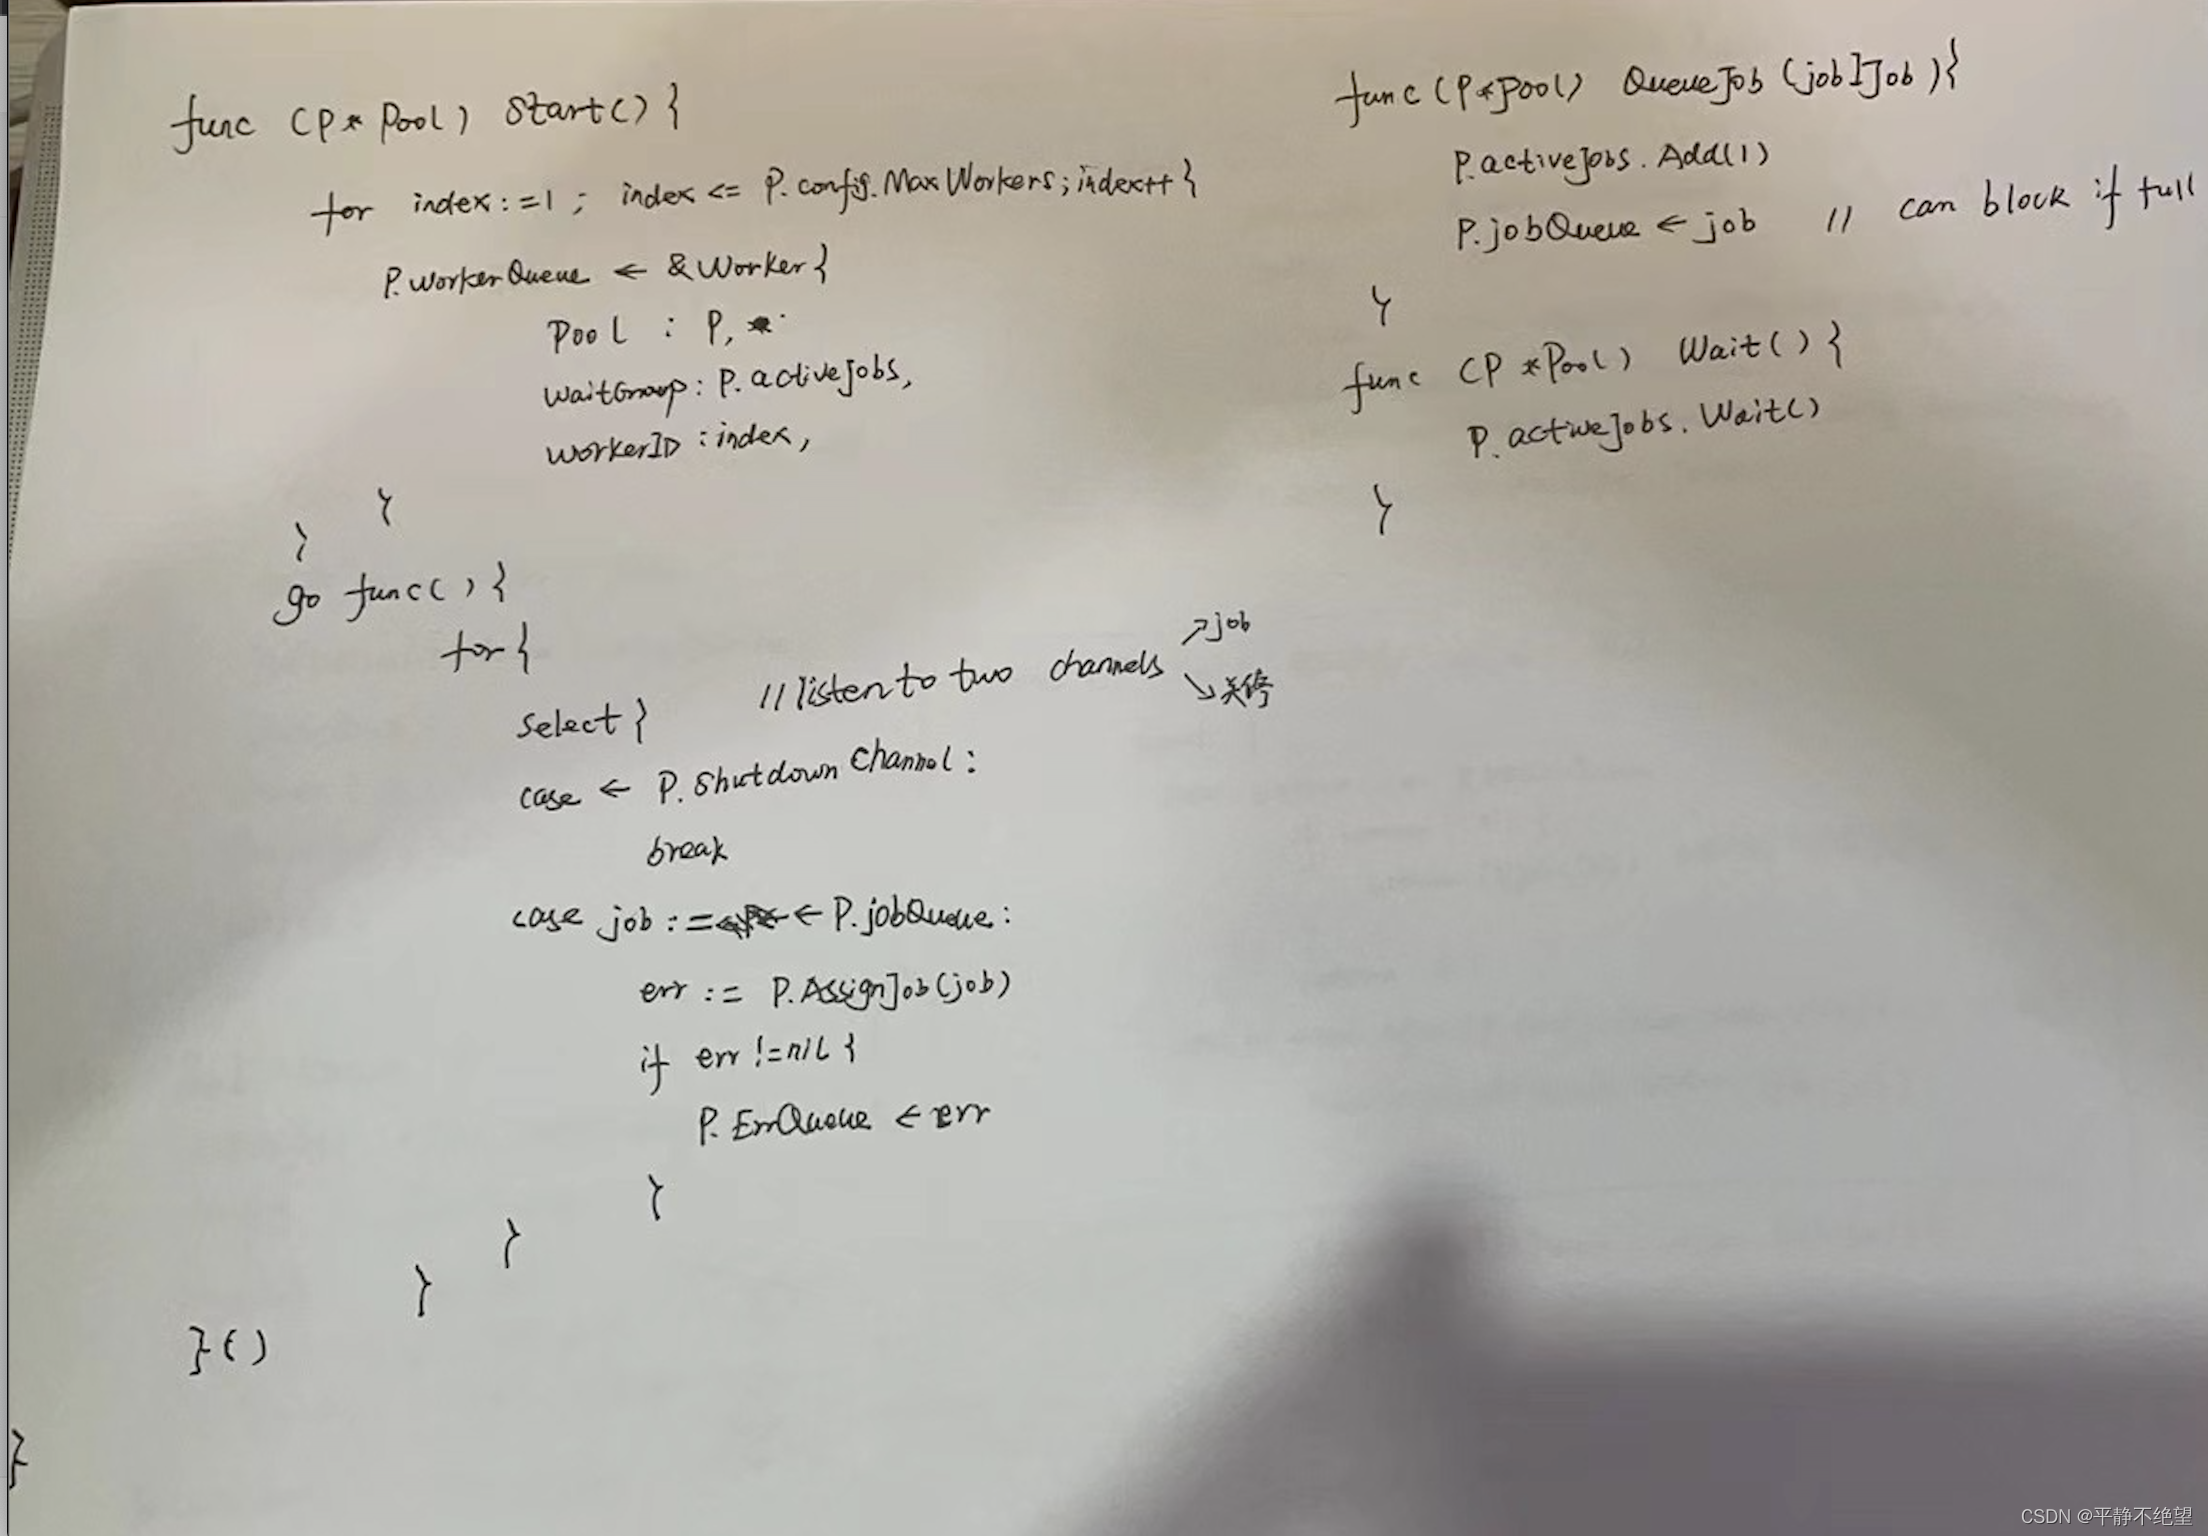 func (P* Pool) Start() {
for index := 1 ; index <= P.config.MaxWorkers; index++ {
P.WorkerQueue ← & Worker {
Pool : P,
WaitGroup : P.activeJobs,
WorkerID : index,
}
}
go func() {
for {
Select } // listen to two channels ↗ job
↘ 关停
case ← P.ShutdownChannel :
break
case job := ← P.jobQueue :
err := P.AssignJob(job)
if err != nil {
P.ErrQueue ← err
}
}
}
}()
}
func (P*Pool) QueueJob (job IJob) {
P.activeJobs.Add(1)
P.jobQueue ← job // can block if full
}
func (P *Pool) Wait() {
P.activeJobs.Wait()
}
CSDN @平静不绝望